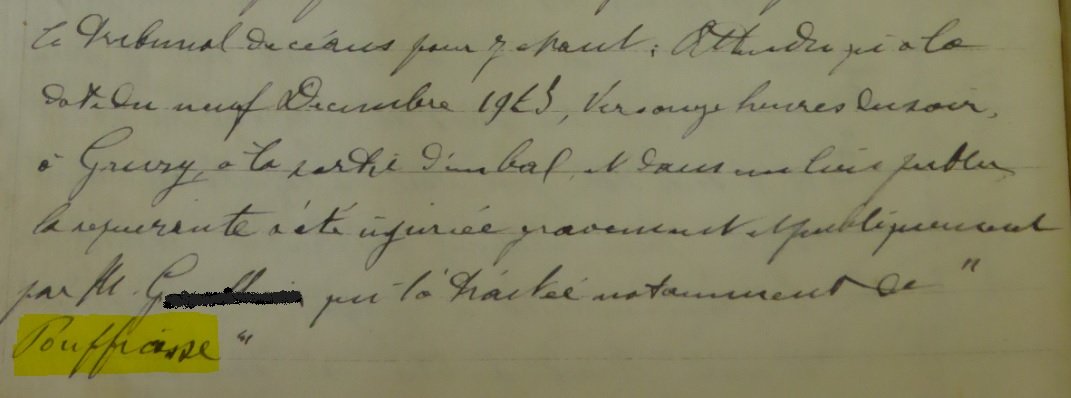 le Tribunal de céans pour y étant ; Attendu qu'à la
date du neuf Décembre 1923, Vers onze heures du soir,
à Grury, à la sortie d'un bal, et dans un lieu public
la requérante a été injuriée gravement et publiquement
par M. G qui l'a traitée notamment de "
Pouffiasse "